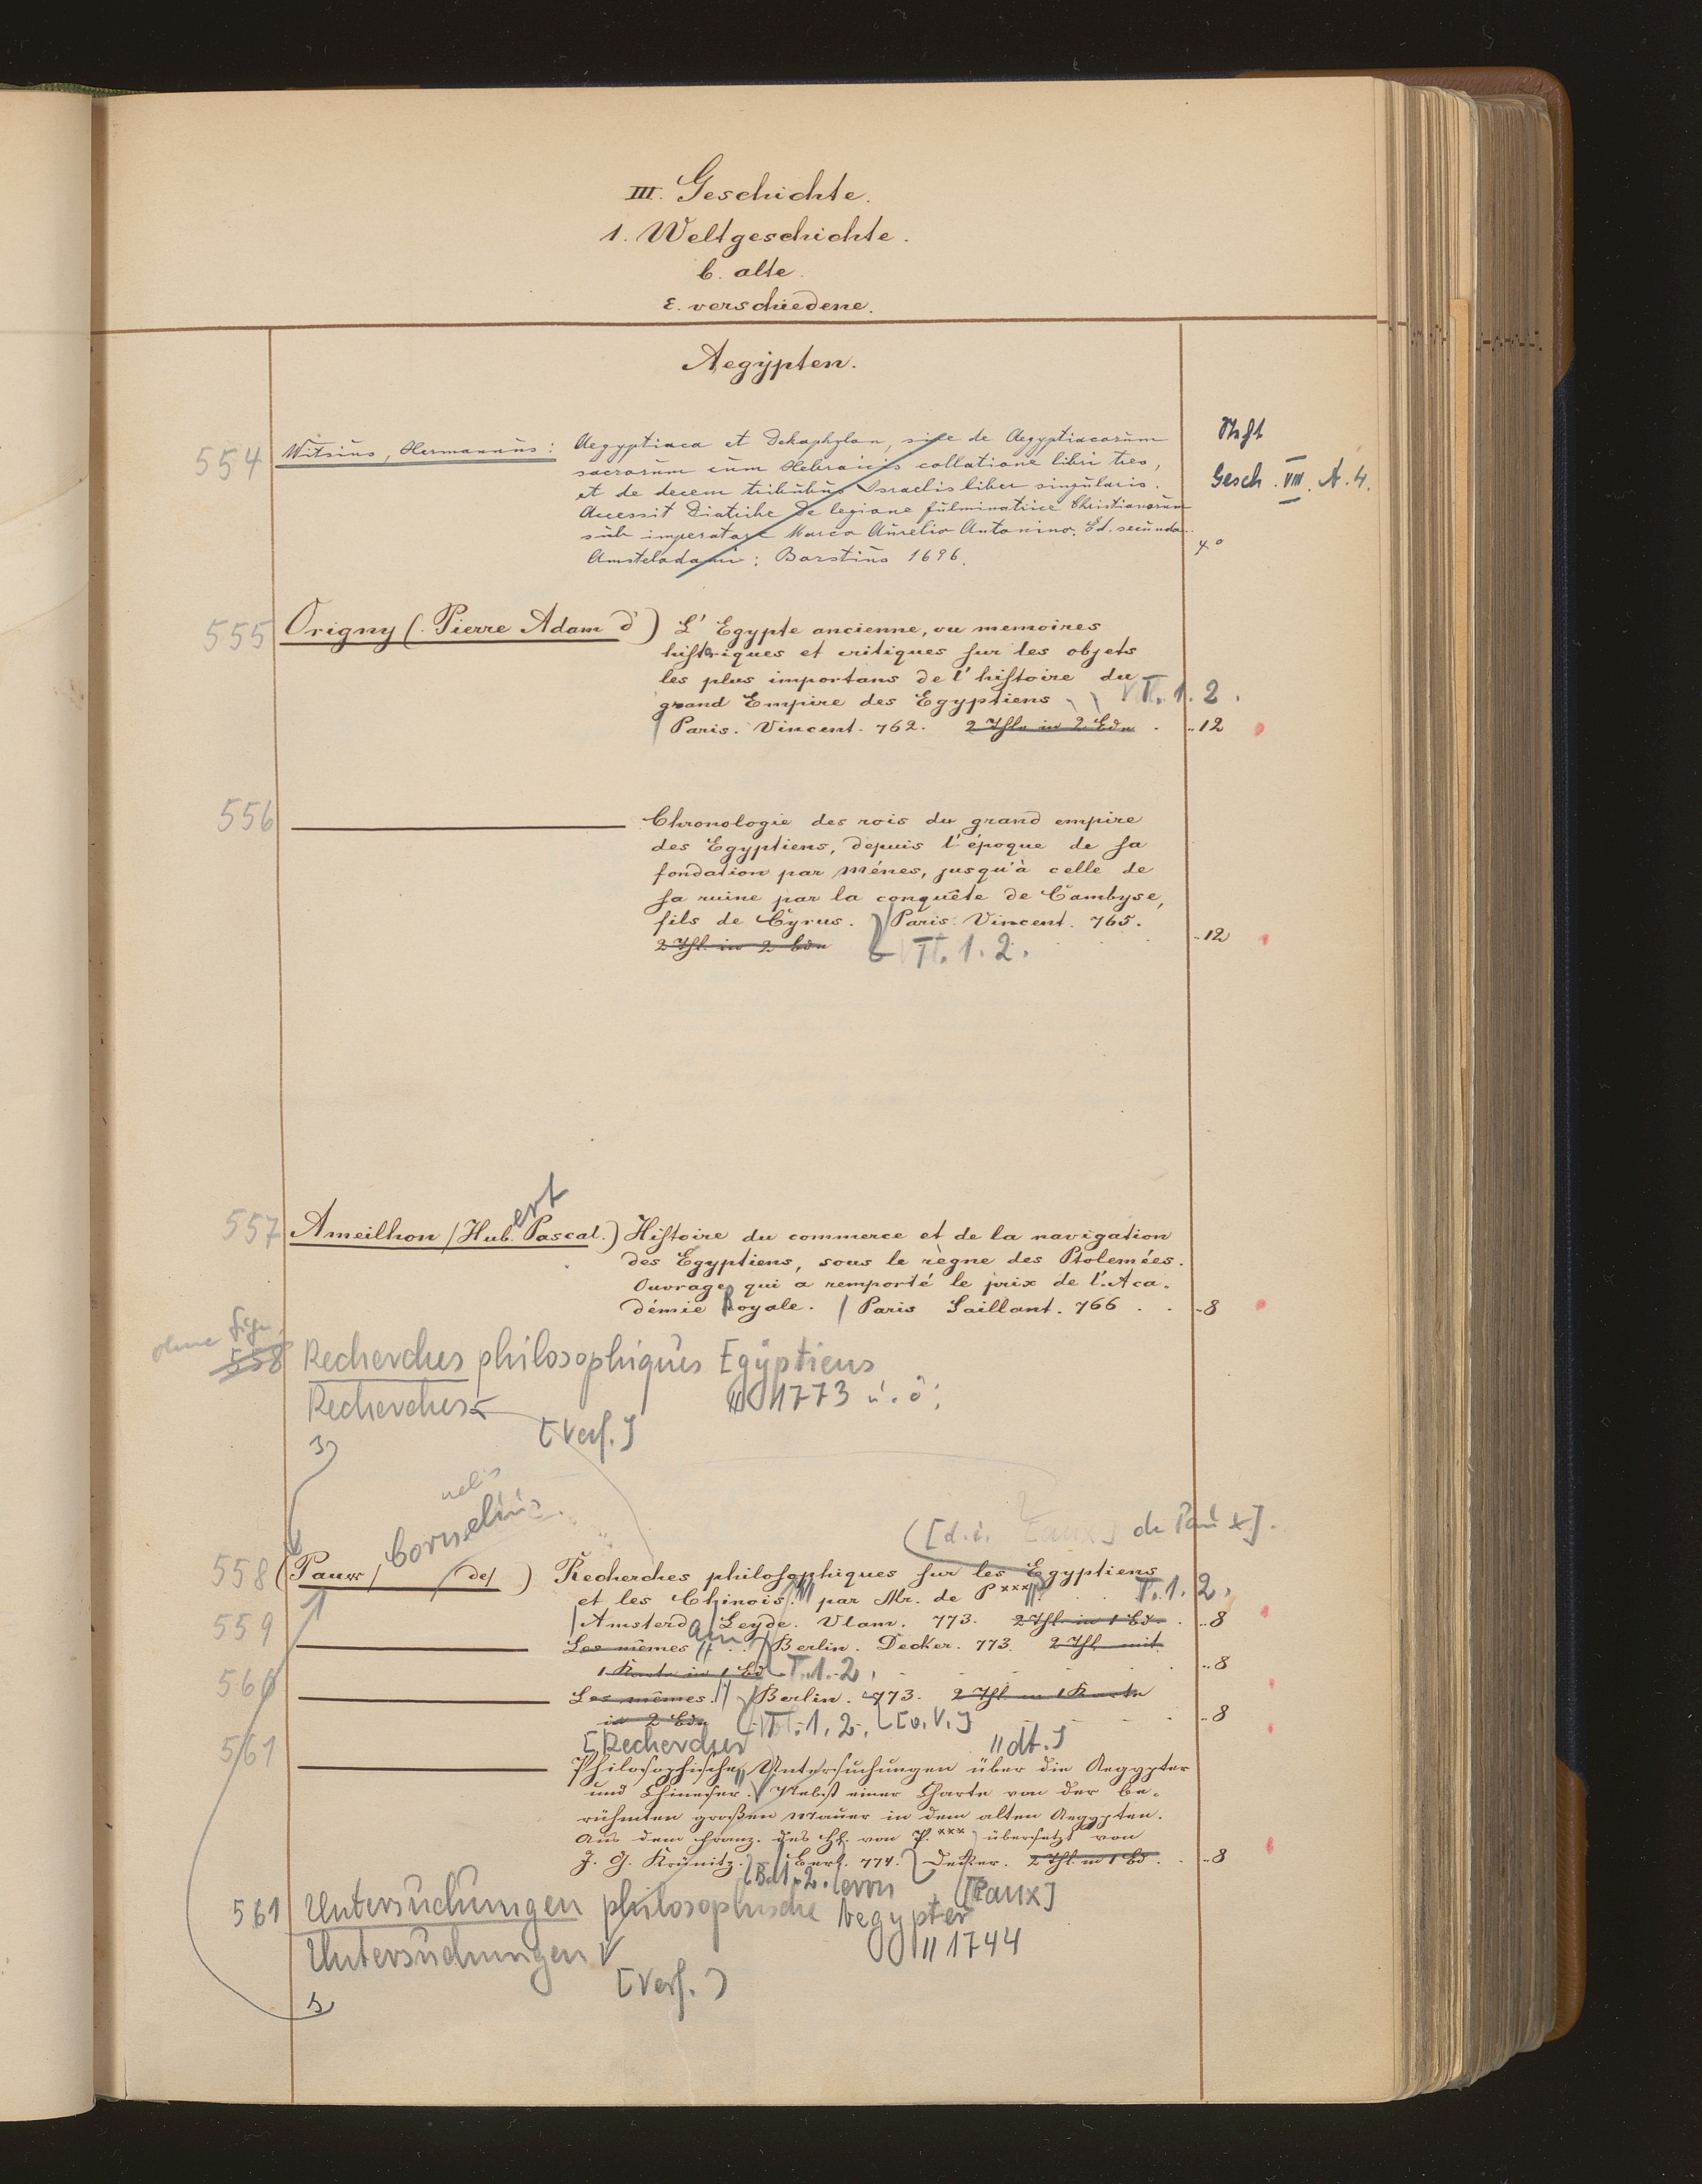 III. Geschichte.
1. Weltgeschichte.
b. alte.
ε. verschiedene.
Aegypten.
554 Witsius, Hermannus: Aegyptiaca et Dekaphylon, sive de Aegyptiacorum
sacrorum cum Hebraicis collatione libri tres,
et de decem tribubus Israelis liber singularis.
Accessit Diatribe de legione fulminatrice Christianorum
sub imperatore Marco Aurelio Antonino. Ed. secunda.
Amstelodami: Borstius 1696. 4°
Gesch. VIII. A. 4.
555 Origny (Pierre Adam d') L'Egypte ancienne, ou memoires
historiques et critiques sur les objets
les plus importans de l'histoire du
grand Empire des Egyptiens T. 1. 2.
Paris. Vincent. 762. 2 Thle in 2 Bdn . ..12
556 Chronologie des rois du grand empire
des Egyptiens, depuis l'époque de sa
fondation par Ménes, jusqu'à celle de
sa ruine par la conquête de Cambyse,
fils de Cyrus. Paris. Vincent. 765.
2 Thl. in 2 Bdn T. 1. 2. ..12
557 Ameilhon (Hub.ert Pascal.) Histoire du commerce et de la navigation
des Egyptiens, sous le règne des Ptolemées.
Ouvrage qui a remporté le prix de l'Aca-
démie Royale. / Paris Saillant. 766 . . ..8
ohne Sign.
558 Recherches philosophiques Egyptiens
Recherches 1773 u. ö.
[Verf.]
nelis
Cornelius
[d.i. Paux] de Paux].
558 (Pauw / de/ ) Recherches philosophiques sur les Egyptiens
et les Chinois. par Mr. de P*** T. 1. 2.
559 Amsterdam Leyde. Vlam. 773. 2 Thl. in 1 Bd. . ..8
Les mêmes Berlin. Decker. 773. 2 Thl. mit
560 1 Karte in 1 Bd T. 1. 2. ..8
Les mêmes. Berlin. 773. 2 Thl. m 1 Karte
in 2 Bdn T. 1. 2. [o. V.] ..8
561 [Recherches dt.]
Philosophische Untersuchungen über die Aegypter
und Chineser. Nebst einer Charte von der be-
rühmten großen Mauer in dem alten Aegypten.
Aus dem Franz. des H. von P.*** übersetzt von
J. G. Krünitz. Berl. 774. Decker. 2 Thl. in 1 Bd. . ..8
Bd 1. 2. von [Paux]
561 Untersuchungen philosophische Aegypter
Untersuchungen 1744
[Verf.]